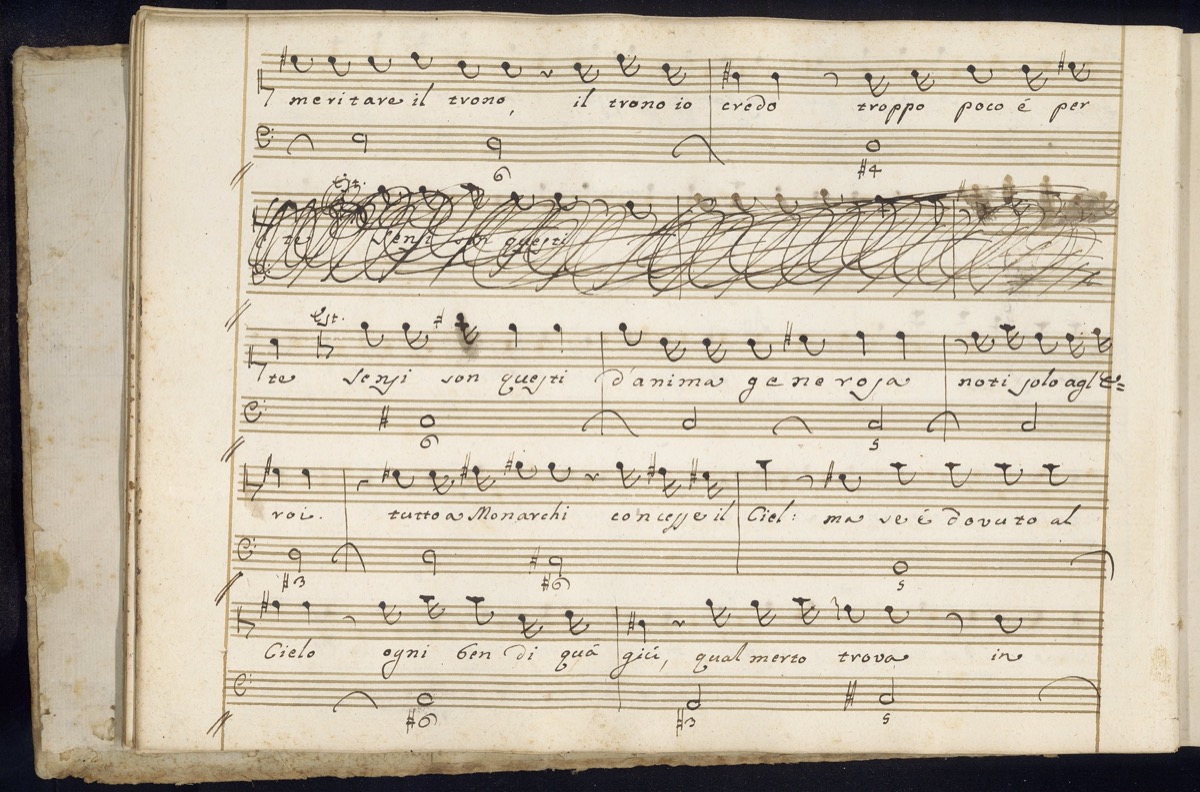 meritare il trono, il trono io credo troppo poco é per
6 #4
Est.
te sensi son questi
Est.
te sensi son questi d'anima generosa noti solo agl'E=
6 5
roi. tutto a Monarchi concesse il Ciel: ma se é dovuto al
#3 #6 5
Cielo ogni ben di quá giú, qual merto trova in
#6 #3 5